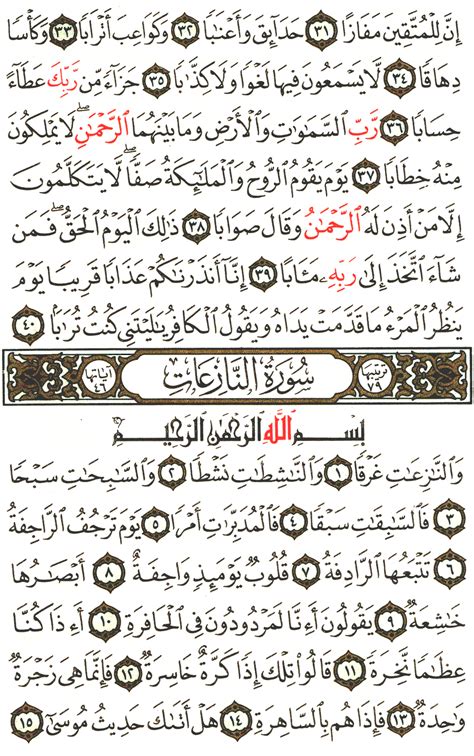 إِنَّ لِلْمُتَّقِينَ مَفَازًا ٣١ حَدَآئِقَ وَأَعْنَٰبًا ٣٢ وَكَوَاعِبَ أَتْرَابًا ٣٣ وَكَأْسًا
دِهَاقًا ٣٤ لَّا يَسْمَعُونَ فِيهَا لَغْوًا وَلَا كِذَّٰبًا ٣٥ جَزَآءً مِّن رَّبِّكَ عَطَآءً
حِسَابًا ٣٦ رَّبِّ ٱلسَّمَٰوَٰتِ وَٱلْأَرْضِ وَمَا بَيْنَهُمَا ٱلرَّحْمَٰنِ ۖ لَا يَمْلِكُونَ
مِنْهُ خِطَابًا ٣٧ يَوْمَ يَقُومُ ٱلرُّوحُ وَٱلْمَلَٰٓئِكَةُ صَفًّا ۖ لَّا يَتَكَلَّمُونَ
إِلَّا مَنْ أَذِنَ لَهُ ٱلرَّحْمَٰنُ وَقَالَ صَوَابًا ٣٨ ذَٰلِكَ ٱلْيَوْمُ ٱلْحَقُّ ۖ فَمَن
شَآءَ ٱتَّخَذَ إِلَىٰ رَبِّهِۦ مَـَٔابًا ٣٩ إِنَّآ أَنذَرْنَٰكُمْ عَذَابًا قَرِيبًا يَوْمَ
يَنظُرُ ٱلْمَرْءُ مَا قَدَّمَتْ يَدَاهُ وَيَقُولُ ٱلْكَافِرُ يَٰلَيْتَنِى كُنتُ تُرَٰبًۢا ٤٠
ترتيبها ٧٩ سُورَةُ النَّازِعَات آياتها ٤٦
بِسْمِ ٱللَّهِ ٱلرَّحْمَٰنِ ٱلرَّحِيمِ
وَٱلنَّٰزِعَٰتِ غَرْقًا ١ وَٱلنَّٰشِطَٰتِ نَشْطًا ٢ وَٱلسَّٰبِحَٰتِ سَبْحًا
٣ فَٱلسَّٰبِقَٰتِ سَبْقًا ٤ فَٱلْمُدَبِّرَٰتِ أَمْرًا ٥ يَوْمَ تَرْجُفُ ٱلرَّاجِفَةُ
٦ تَتْبَعُهَا ٱلرَّادِفَةُ ٧ قُلُوبٌ يَوْمَئِذٍ وَاجِفَةٌ ٨ أَبْصَٰرُهَا
خَٰشِعَةٌ ٩ يَقُولُونَ أَءِنَّا لَمَرْدُودُونَ فِى ٱلْحَافِرَةِ ١٠ أَءِذَا كُنَّا
عِظَٰمًا نَّخِرَةً ١١ قَالُوا۟ تِلْكَ إِذًا كَرَّةٌ خَاسِرَةٌ ١٢ فَإِنَّمَا هِىَ زَجْرَةٌ
وَٰحِدَةٌ ١٣ فَإِذَا هُم بِٱلسَّاهِرَةِ ١٤ هَلْ أَتَىٰكَ حَدِيثُ مُوسَىٰٓ ١٥